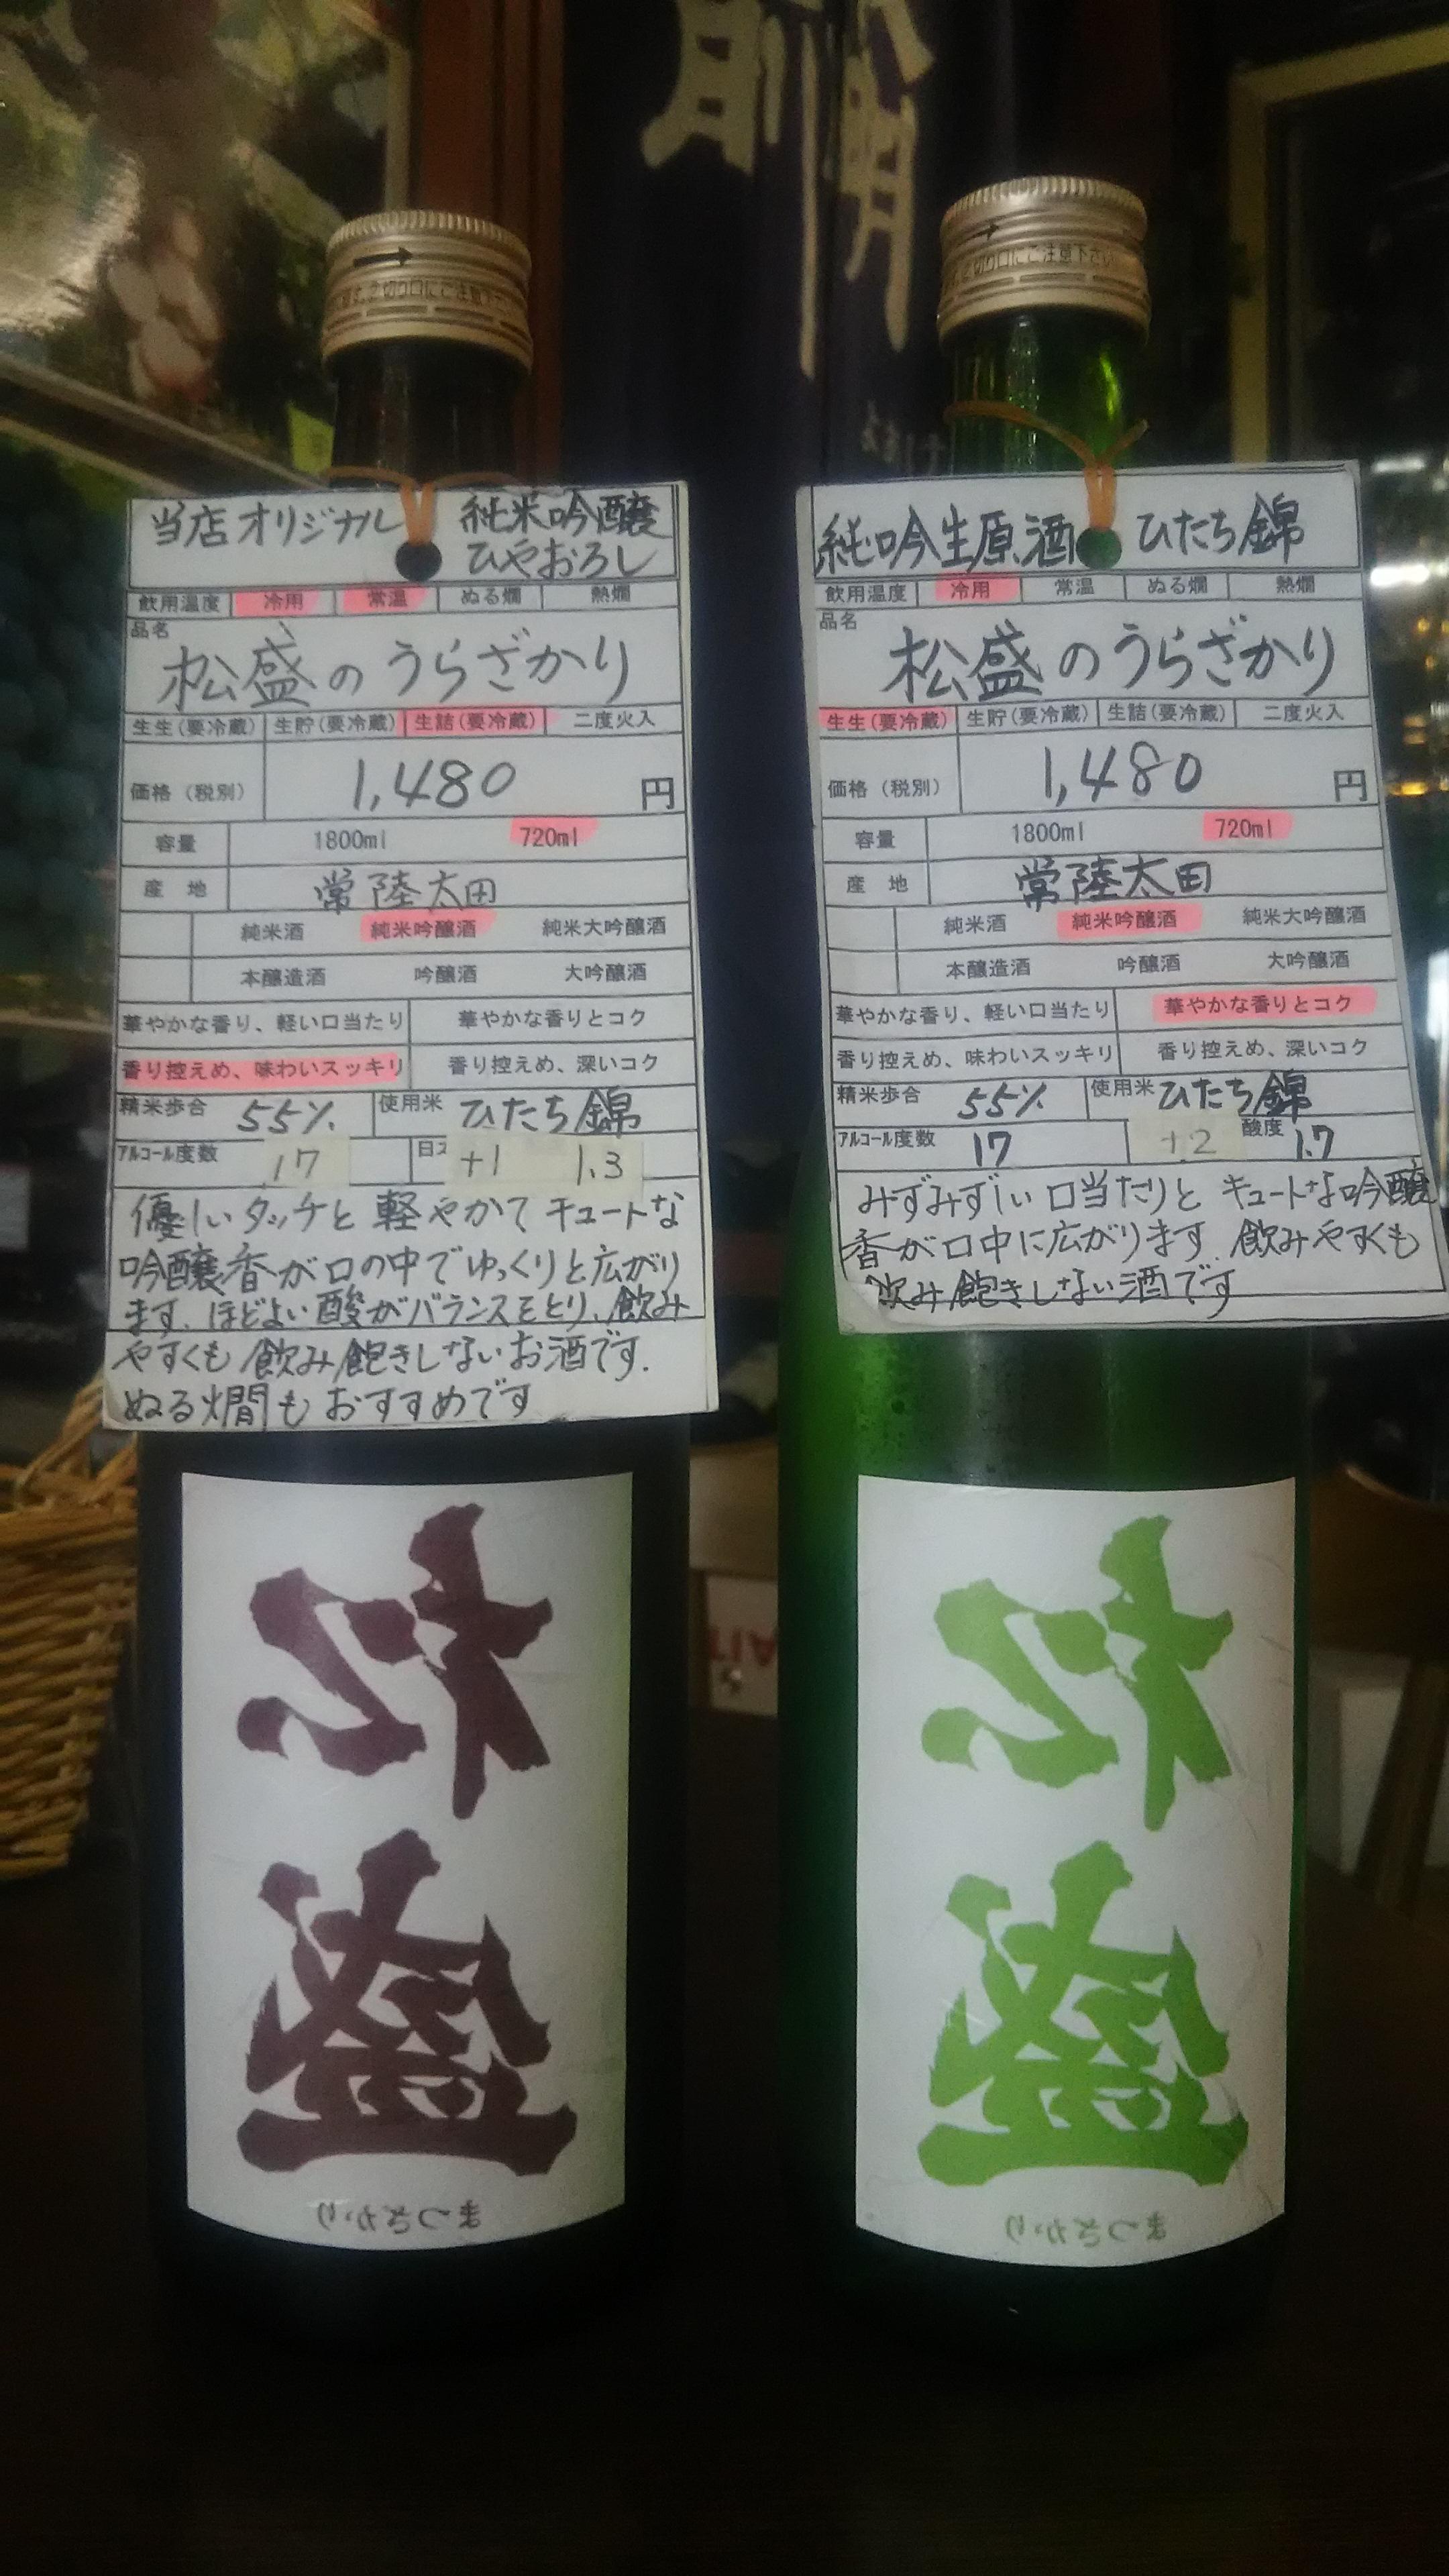 当店オリジナル 純米吟醸
ひやおろし
飲用温度 冷用 常温 ぬる燗 熱燗
品名
松盛のうらざかり
生生(要冷蔵) 生貯(要冷蔵) 生詰(要冷蔵) 二度火入
価格(税別) 1,480 円
容量 1800ml 720ml
産地 常陸太田
純米酒 純米吟醸酒 純米大吟醸酒
本醸造酒 吟醸酒 大吟醸酒
華やかな香り、軽い口当たり 華やかな香りとコク
香り控えめ、味わいスッキリ 香り控えめ、深いコク
精米歩合 55% 使用米 ひたち錦
アルコール度数 17 +1 1.3
優しいタッチと軽やかでキュートな
吟醸香が口の中でゆっくりと広がり
ます。ほどよい酸がバランスをとり、飲み
やすくも飲み飽きしないお酒です.
ぬる燗もおすすめです
松盛
まつざかり
純吟生原酒 ひたち錦
飲用温度 冷用 常温 ぬる燗 熱燗
品名
松盛のうらざかり
生生(要冷蔵) 生貯(要冷蔵) 生詰(要冷蔵) 二度火入
価格(税別) 1,480 円
容量 1800ml 720ml
産地 常陸太田
純米酒 純米吟醸酒 純米大吟醸酒
本醸造酒 吟醸酒 大吟醸酒
華やかな香り、軽い口当たり 華やかな香りとコク
香り控えめ、味わいスッキリ 香り控えめ、深いコク
精米歩合 55% 使用米 ひたち錦
アルコール度数 17 +2 酸度 1.7
みずみずしい口当たりとキュートな吟醸
香が口中に広がります.飲みやすくも
飲み飽きしない酒です
松盛
まつざかり